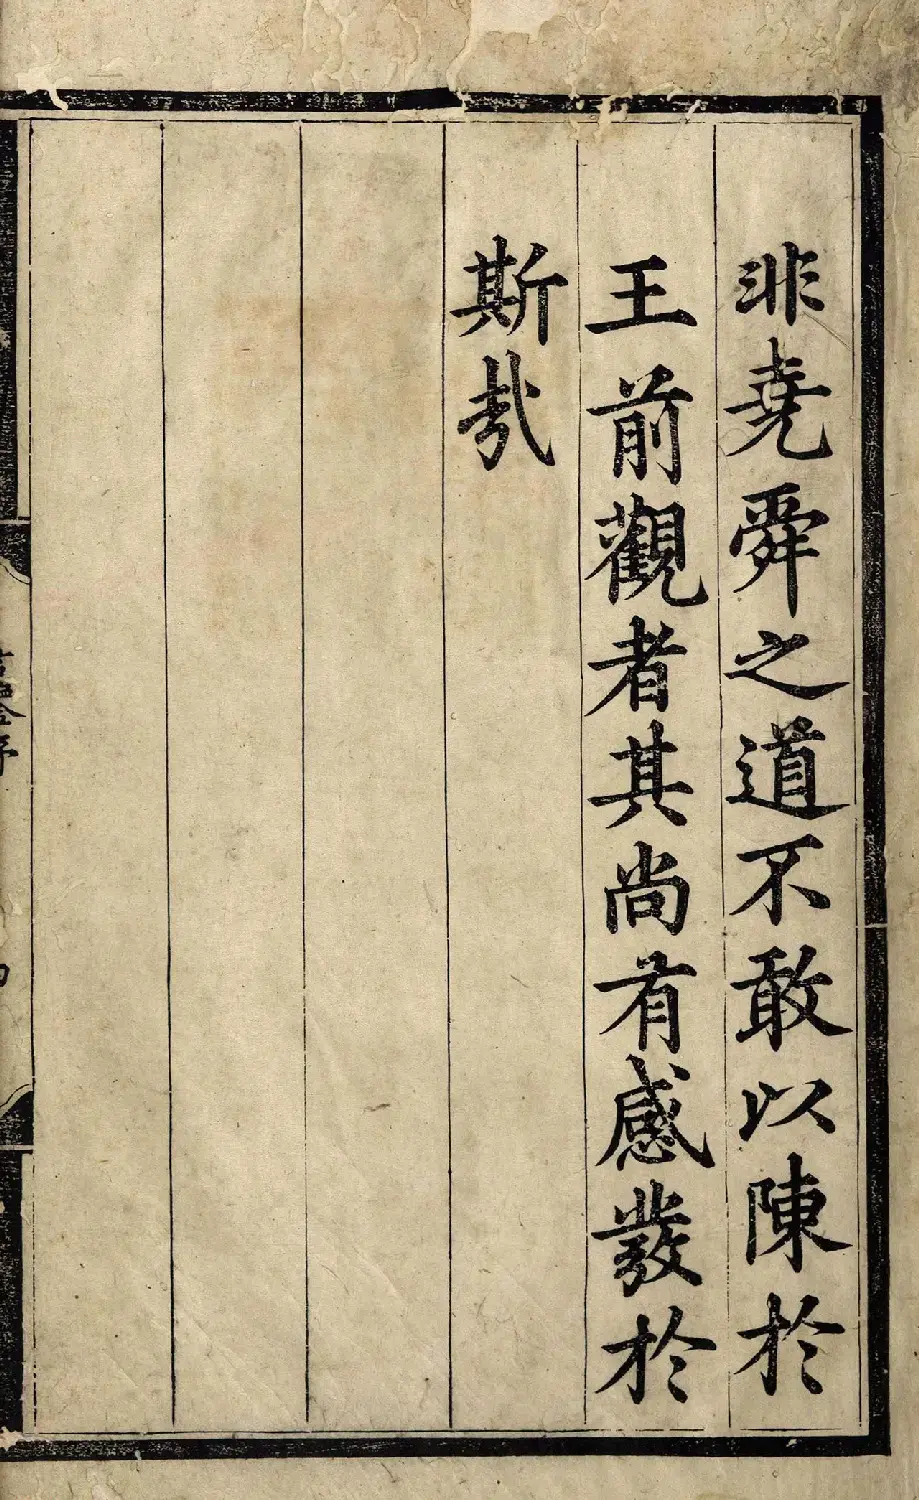 非堯舜之道不敢以陳於
王前觀者其尚有感發於
斯㢤